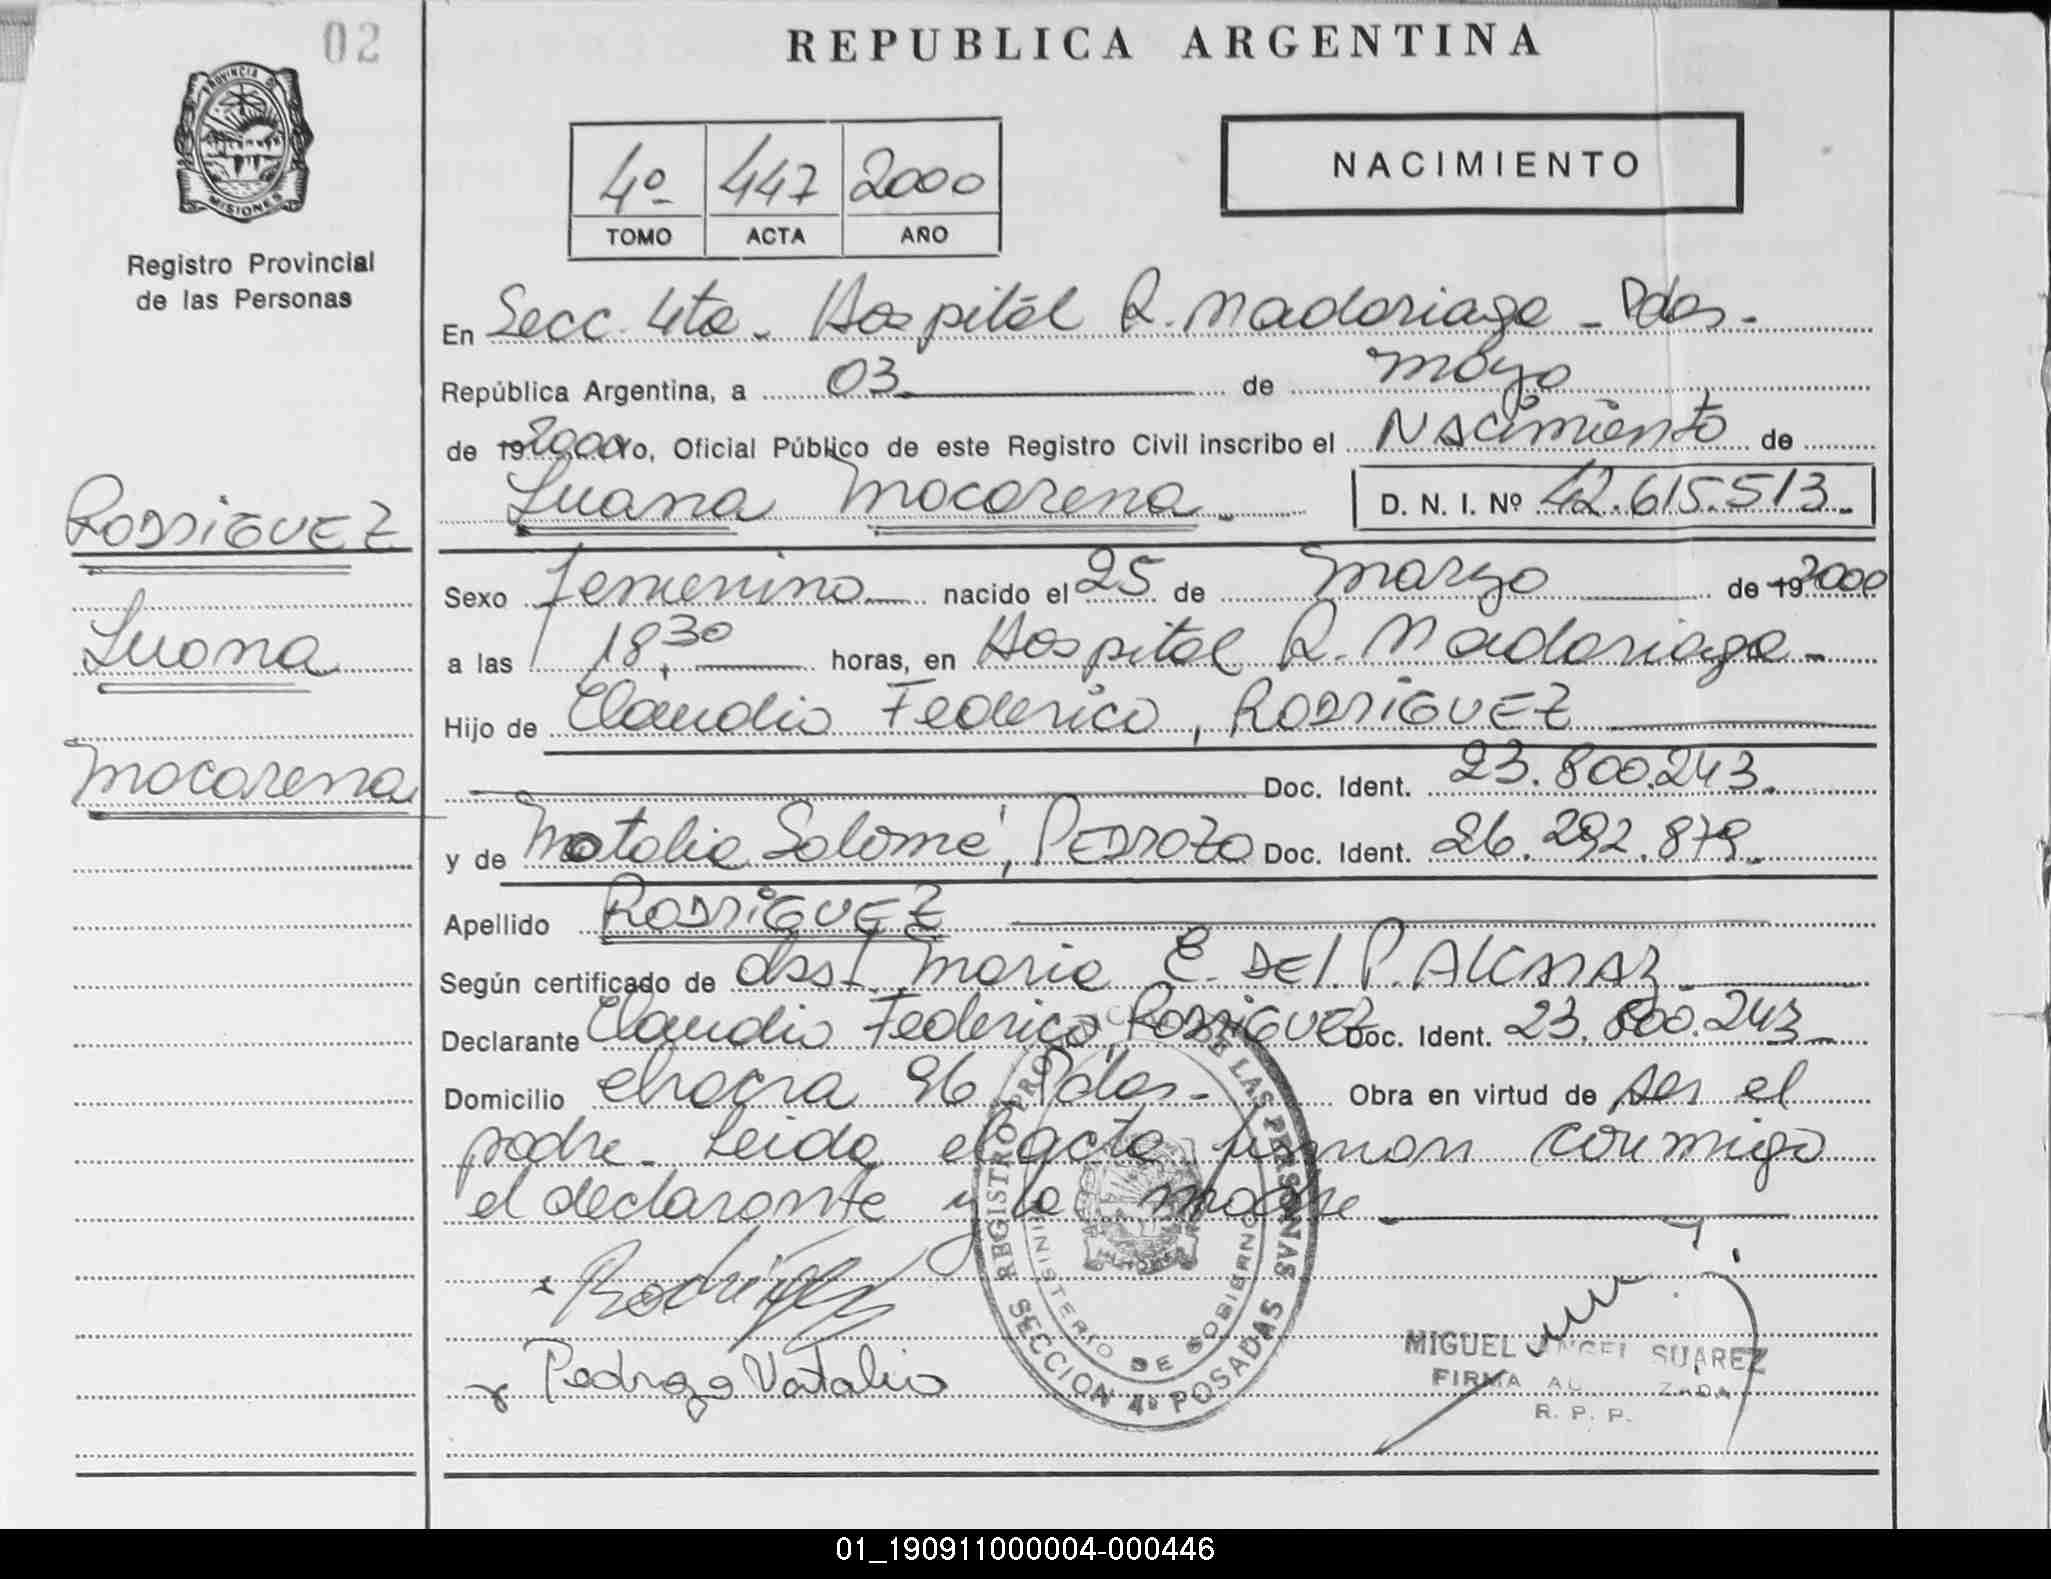 02
REPUBLICA ARGENTINA
PROVINCIA DE
MISIONES
Registro Provincial
de las Personas
4º 447 2000
TOMO ACTA AÑO
NACIMIENTO
En Secc. 4ta - Hospital R. Madariaga - Pdas -
República Argentina, a 03 de mayo
de 19 2000 Yo, Oficial Público de este Registro Civil inscribo el Nacimiento de
Luana Macarena - D. N. I. Nº 42.615.513 -
RODRIGUEZ
Luana
Macarena
Sexo femenino nacido el 25 de marzo de 19 2000
a las 18,30 horas, en Hospital R. Madariaga -
Hijo de Claudio Federico, RODRIGUEZ
Doc. Ident. 23.800.243.
y de Natalia Salomé, PEDROZO Doc. Ident. 26.292.879.
Apellido RODRIGUEZ
Según certificado de obst. Maria E. DEL. P. ALCARAZ
Declarante Claudio Federico RODRIGUEZ Doc. Ident. 23.800.243
Domicilio chacra 96 Pdas - Obra en virtud de ser el
padre - Leida el acta firman conmigo
el declarante y la madre
Rodriguez
Pedrozo Natalia
REGISTRO PRO DE LAS PERSONAS
MINISTERIO DE GOBIERNO
SECCION 4ª POSADAS
MIGUEL ANGEL SUAREZ
FIRMA AU ZADA
R. P. P.
01_190911000004-000446